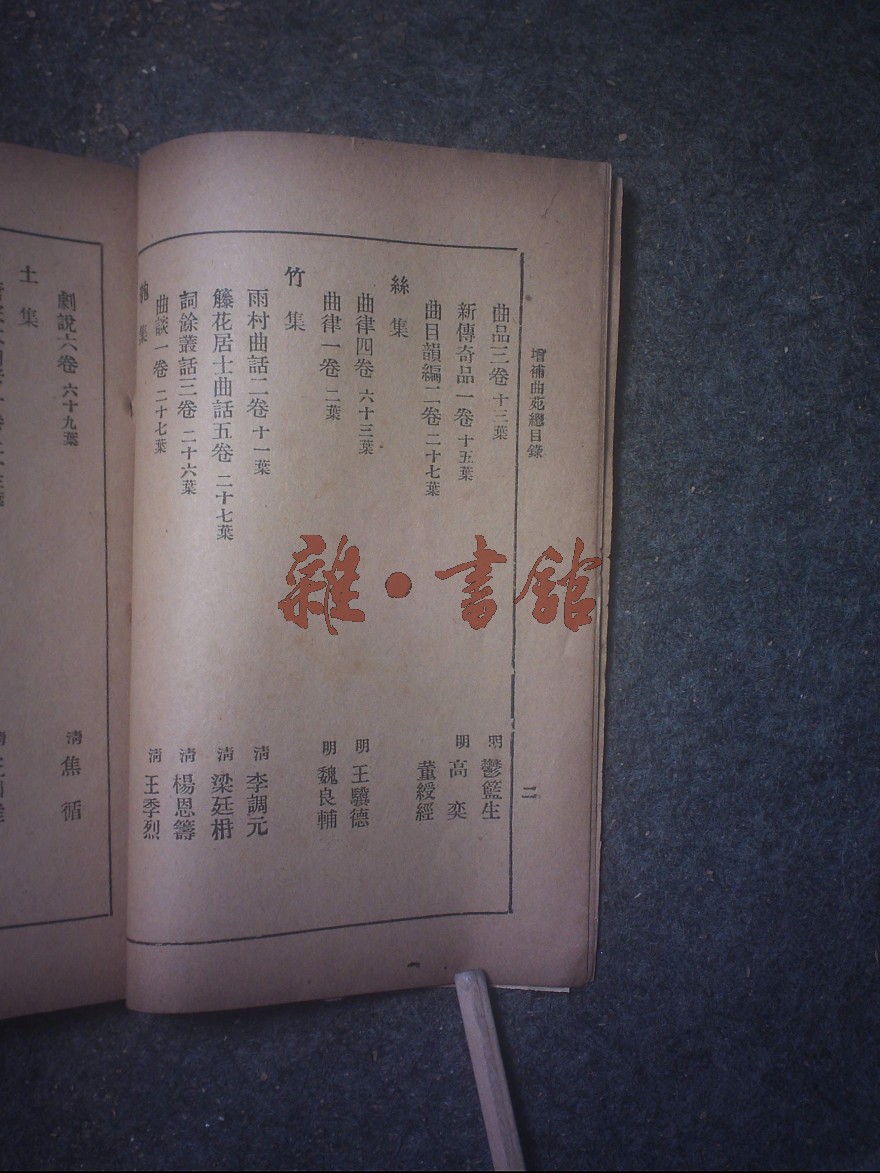 增補曲苑總目錄
二
曲品三卷 十三葉 明 鬱籃生
新傳奇品一卷 十五葉 明 高奕
曲目韻編二卷 二十七葉 董綬經
絲集
曲律四卷 六十三葉 明 王驥德
曲律一卷 二葉 明 魏良輔
竹集
雨村曲話二卷 十一葉 清 李調元
籐花居士曲話五卷 二十七葉 清 梁廷枏
詞餘叢話三卷 二十六葉 清 楊恩籌
集
曲談一卷 二十七葉 清 王季烈
土集
劇說六卷 六十九葉 清 焦循
雜·書館